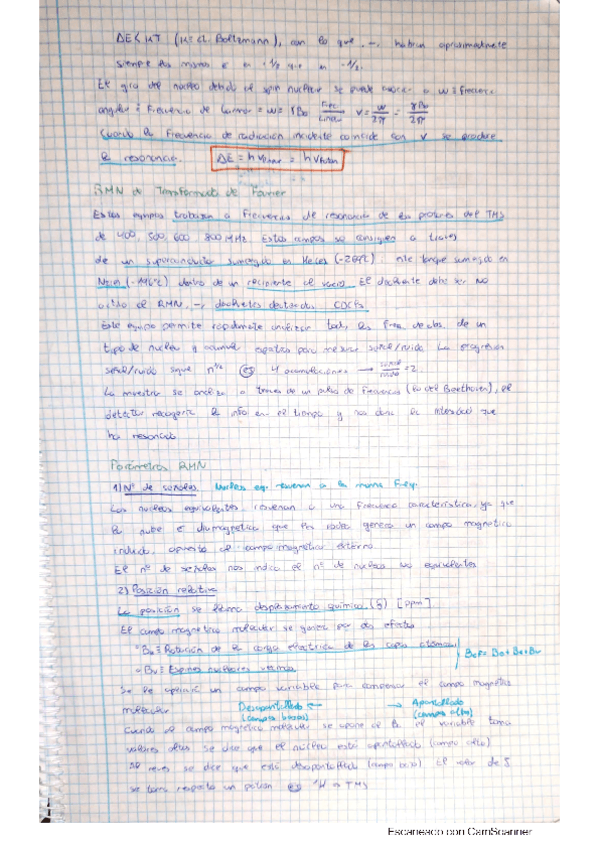 ΔE<KT (K=ct. Boltzmann), con lo que habrán aproximadamente
siempre los mismos e⁻ en +1/2 que en -1/2.
El giro del núcleo debido al spin nuclear se puede asociar a w≡frecuencia
angular ≡ Frecuencia de Larmor = w = γB₀ Frec. Lineal ν = w/2π = γB₀/2π
Cuando la frecuencia de radiación incidente coincide con ν se produce
la resonancia. ΔE = hν = hν
RMN de Transformada de Fourier
Estos equipos trabajan a frecuencias de resonancia de los protones del TMS
de 400, 500, 600, 800 MHz. Estos campos se consiguen a través
de un superconductor sumergido en (-269ºC), este tanque sumergido en
(-196ºC) dentro de un recipiente al vacío. El disolvente debe ser no
activo al RMN, → disolventes CDCl₃
Este equipo permite rápidamente analizar todas las frec. de abs. de un
tipo de núcleo y acumular espectros para mejorar señal/ruido. La progresión
señal/ruido sigue n^1/2 4 acumulaciones → señal/ruido = 2.
La muestra se analiza a través de un pulso de frecuencias (lo del Beethoven), el
detector recogerá la info en el tiempo y nos dará la intensidad que
ha resonado
Parámetros RMN
1) Nº de señales. Núcleos eq. resuenan a la misma Freq.
Los núcleos equivalentes resuenan a una frecuencia característica, ya que
la nube e⁻ diamagnética que los rodea genera un campo magnético
inducido, opuesto al campo magnético externo.
El nº de señales nos indica el nº de núcleos no equivalentes
2) Posición relativa
La posición se llama desplazamiento químico (δ) [ppm].
El campo magnético molecular se genera por dos efectos
Be ≡ Rotación de la carga eléctrica de las capas atómicas
Bef = B₀ + Be + Bv
Bv ≡ Espines nucleares vecinos
Se le aplicará un campo variable para compensar el campo magnético
molecular Desapantallado ← → Apantallado
(campo bajo) (campo alto)
Cuando el campo magnético molecular se opone al B₀ el variable toma
valores altos se dice que el núcleo está apantallado (campo alto)
Al revés se dice que está desapantallado (campo bajo). El valor de δ
se toma respecto un patrón ¹H → TMS
Escaneado con CamScanner